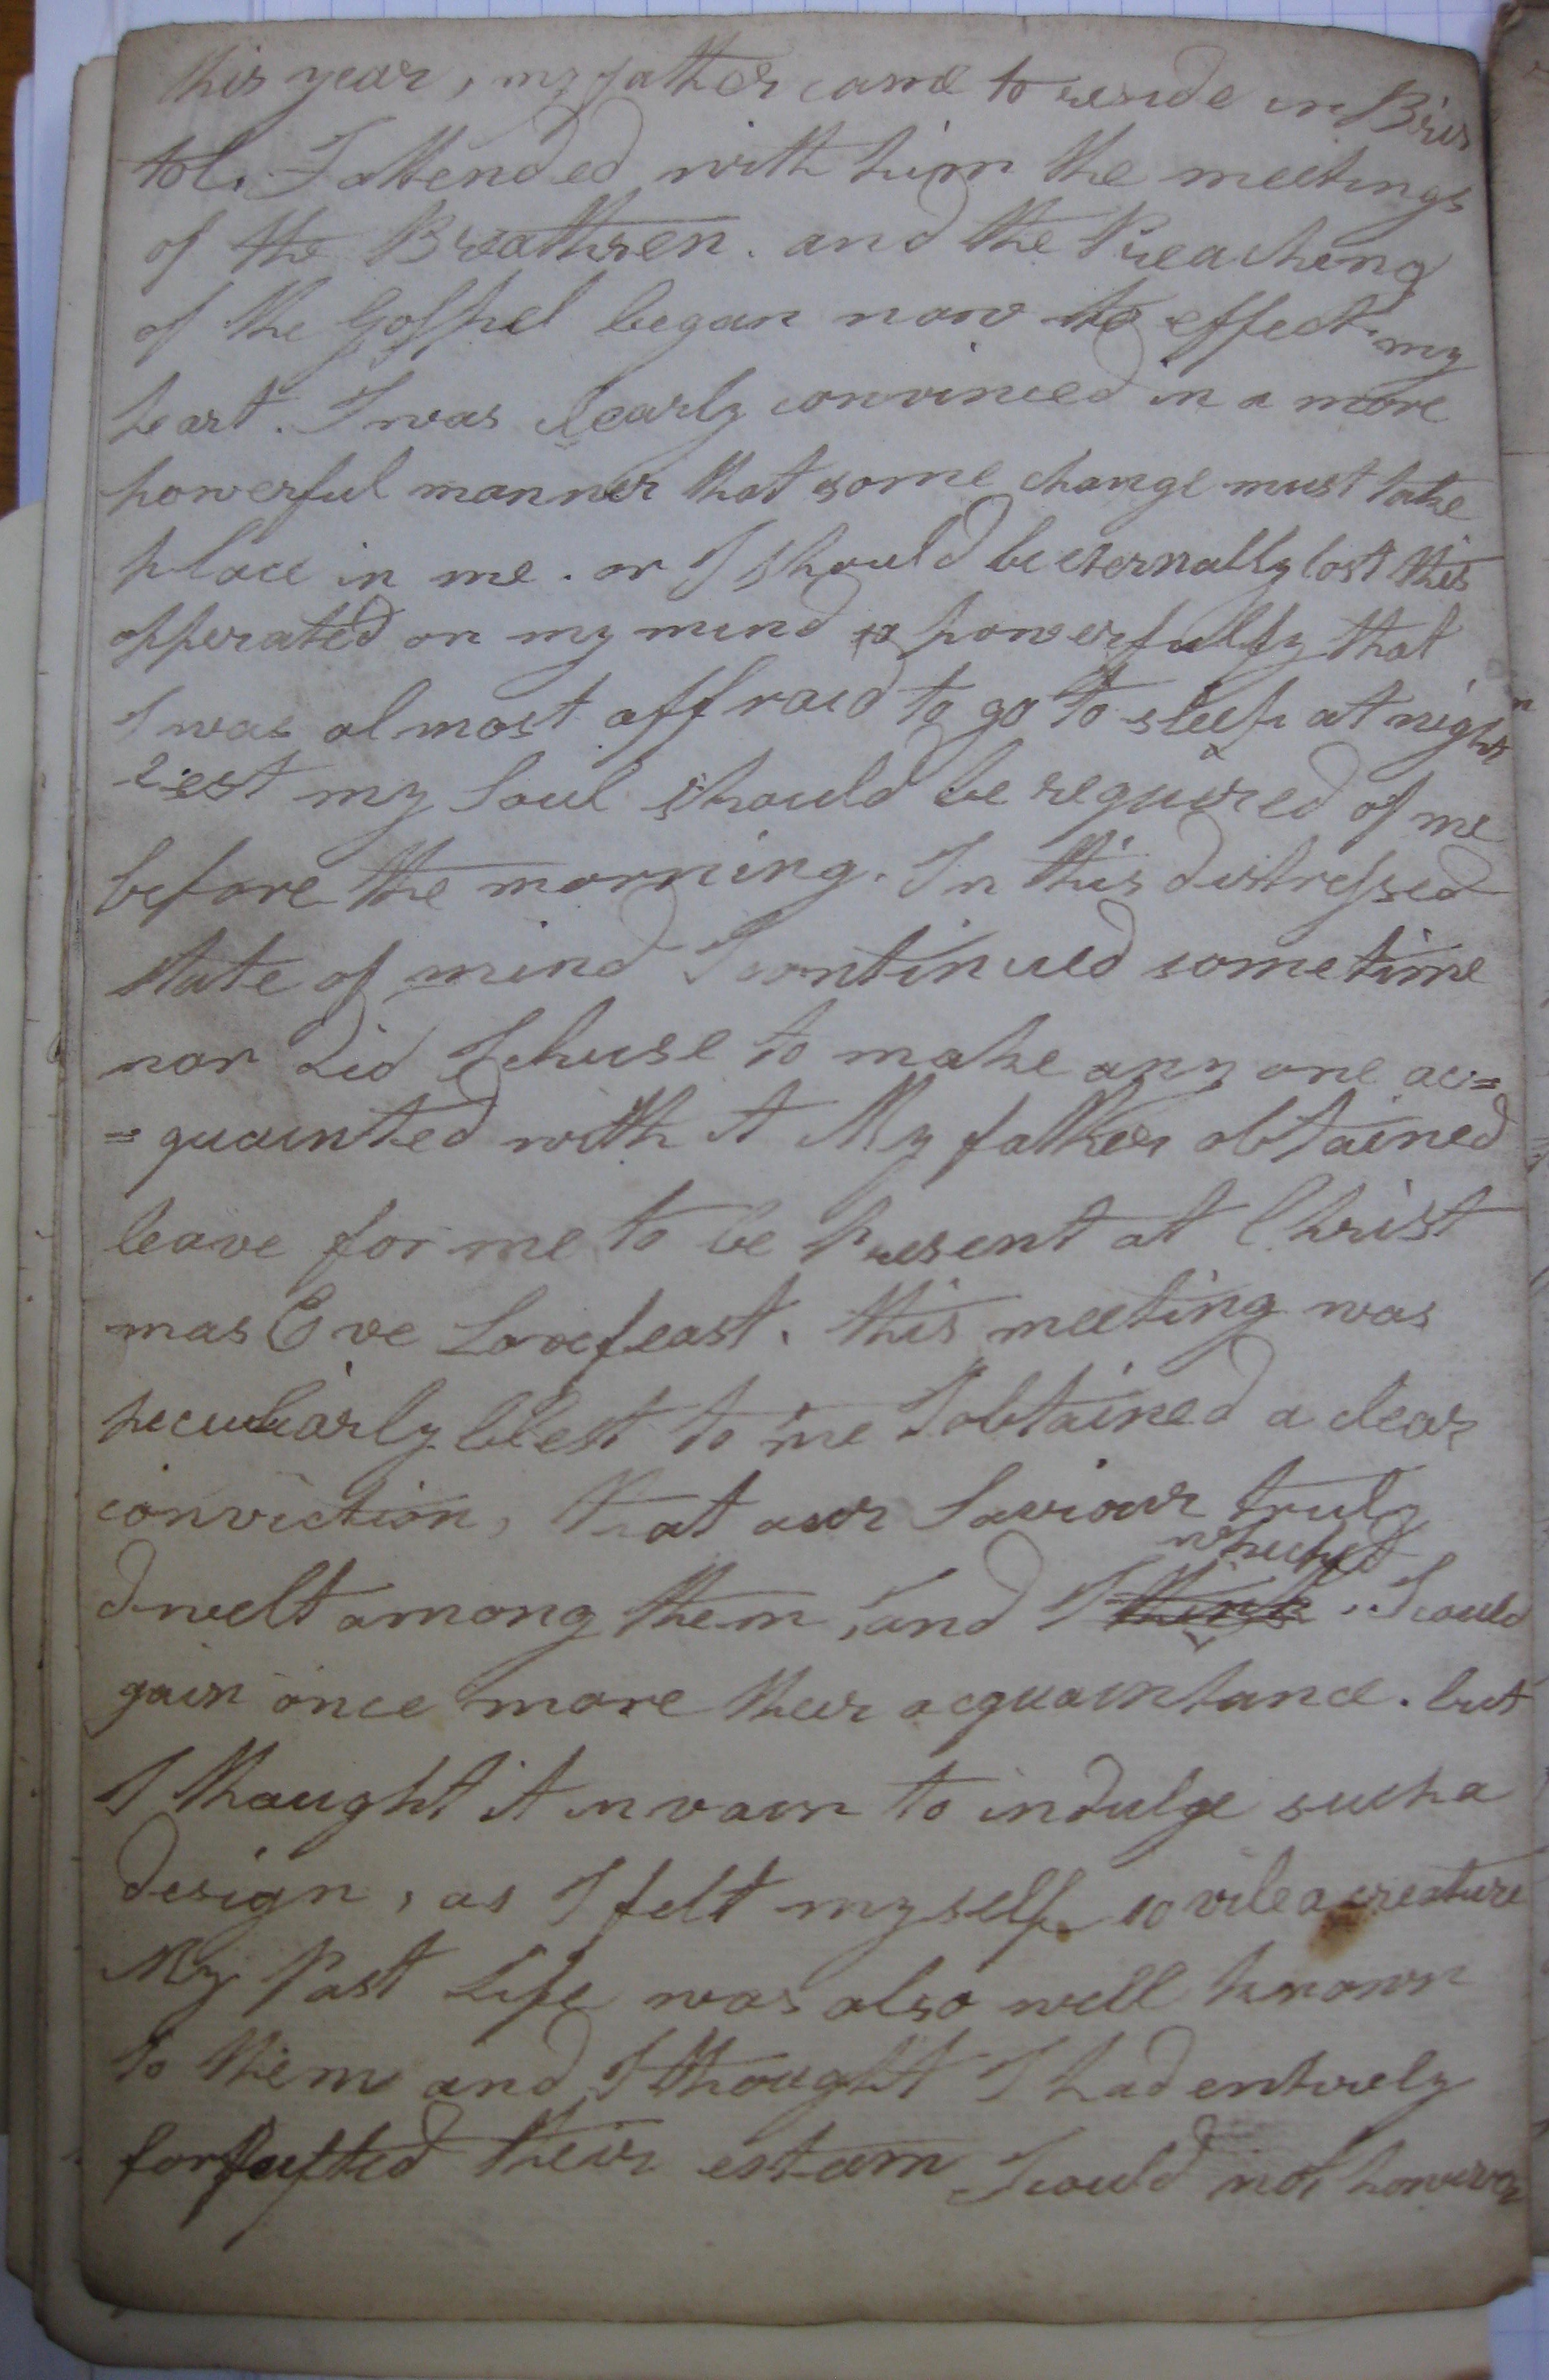 this year, my father came to reside in Bris
tol. I attended with him the meetings
of the Breathren. and the Preaching
of the Gospel began now to effect my
heart. I was clearly convinced in a more
powerful manner that some change must take
place in me. or I should be eternally lost this
opperated on my mind so powerfully that
I was almost affraid to go to sleep at night
Lest my Soul should be required of me
before the morning. In this distressed
state of mind I continued sometime
nor did I chuse to make any one ac=
=quainted with it My father obtained
leave for me to be Present at Christ
mas Eve Lovefeast. this meeting was
peculiarly blest to me I obtained a clear
conviction, that our Saviour truly
whished
dwelt among them, and I think, I could
gain once more their acquaintance. but
I thought it in vain to indulge such a
design, as I felt myself so vile a creature
My Past Life was also well known
to them and I thought I had entirely
forfeited their esteem I could not however